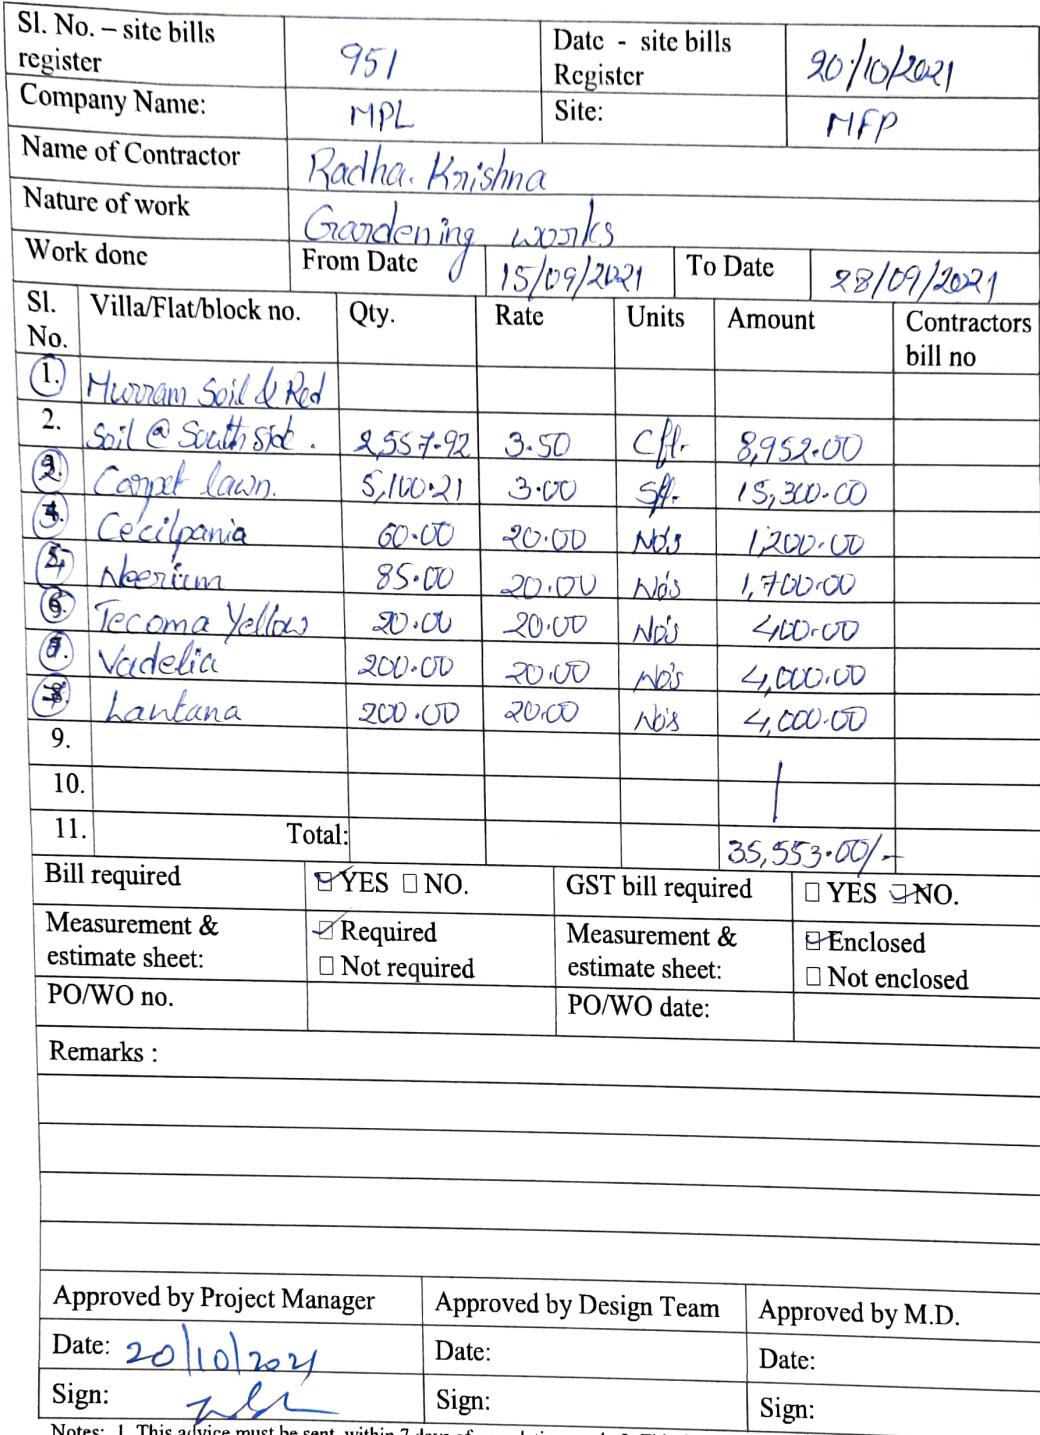 Sl. No. – site bills register 951 Date - site bills Register 20/10/2021
Company Name: MPL Site: MFP
Name of Contractor Radha. Krishna
Nature of work Gardening works
Work done From Date 15/09/2021 To Date 28/09/2021
Sl. No. Villa/Flat/block no. Qty. Rate Units Amount Contractors bill no
1. Murram Soil & Red
2. Soil @ South side. 2,557.92 3.50 Cft. 8,952.00
2. Carpet lawn. 5,100.21 3.00 Sft. 15,300.00
3. Cecilpania 60.00 20.00 No's 1,200.00
4. Neerium 85.00 20.00 No's 1,700.00
5. Tecoma Yellow 20.00 20.00 No's 400.00
6. Vadelia 200.00 20.00 No's 4,000.00
7. Lantana 200.00 20.00 No's 4,000.00
9.
10.
11. Total: 35,553.00/-
Bill required YES NO. GST bill required YES NO.
Measurement & estimate sheet: Required Not required Measurement & estimate sheet: Enclosed Not enclosed
PO/WO no. PO/WO date:
Remarks :
Approved by Project Manager Approved by Design Team Approved by M.D.
Date: 20/10/2021 Date: Date:
Sign: Sign: Sign:
Notes: 1. This advice must be sent within 7 days of